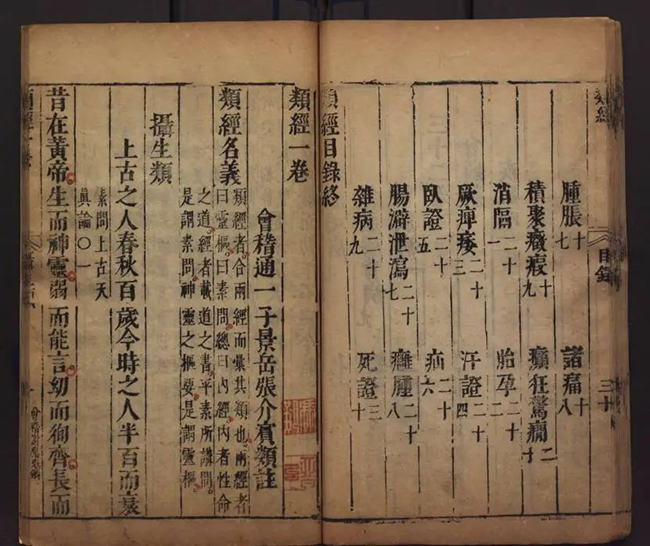 類經
目錄
三十
腫脹十七 諸痛十八
積聚癥瘕十九 癲狂驚癎二十
消隔二十一 胎孕二十二
厥痺痿二十三 汗證二十四
臥證二十五 疟二十六
腸澼泄瀉二十七 癰腫二十八
雜病二十九 死證三十
類經目錄終
類經一卷
會稽通一子景岳張介賓類註
類經名義
類經者合兩經而彙其類也兩經者
曰靈樞曰素問總曰內經內者性命
之道經者載道之書平素所講問
是謂素問神靈之樞要是謂靈樞
攝生類
上古之人春秋百歲今時之人半百而衰
素問上古天
真論〇一
昔在黃帝生而神靈弱而能言幼而徇齊長而
類經一卷